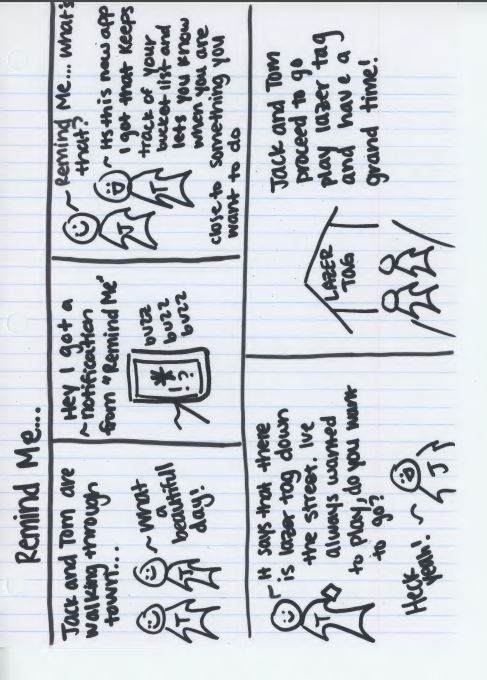 Remind Me...
Jack and Tom are
walking through
town...
What
a
beautiful
day!
T
J
Hey I got a
notification
from "Remind Me"
! * ?
buzz
buzz
buzz
Remind Me... what's
that?
Its this new app
I got that keeps
track of your
bucket list and
lets you know
when you are
close to something you
want to do
J
T
It says that there
is lazer tag down
the street. Ive
always wanted
to play, do you want
to go?
T
Heck
yeah!
J
LAZER
TAG
Jack and Tom
proceed to go
play lazer tag
and have a
grand time!